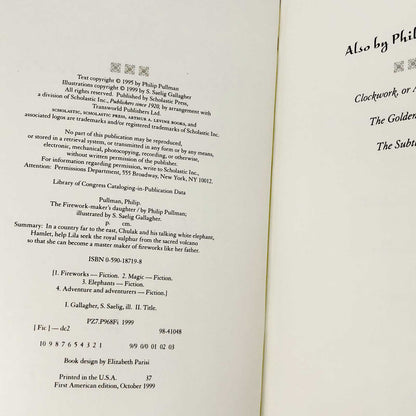 Text copyright © 1995 by Philip Pullman
Illustrations copyright © 1999 by S. Saelig Gallagher
All rights reserved. Published by Scholastic Press,
a division of Scholastic Inc., Publishers since 1920, by arrangement with
Transworld Publishers Ltd.
SCHOLASTIC, SCHOLASTIC PRESS, ARTHUR A. LEVINE BOOKS, and
associated logos are trademarks and/or registered trademarks of Scholastic Inc.
No part of this publication may be reproduced,
or stored in a retrieval system, or transmitted in any form or by any means,
electronic, mechanical, photocopying, recording, or otherwise,
without written permission of the publisher.
For information regarding permission, write to Scholastic Inc.,
Attention: Permissions Department, 555 Broadway, New York, NY 10012.
Library of Congress Cataloging-in-Publication Data
Pullman, Philip.
The Firework-maker's daughter / by Philip Pullman;
illustrated by S. Saelig Gallagher
p. cm.
Summary: In a country far to the east, Chulak and his talking white elephant,
Hamlet, help Lila seek the royal sulphur from the sacred volcano
so that she can become a master maker of fireworks like her father.
ISBN 0-590-18719-8
[1. Fireworks — Fiction. 2. Magic — Fiction.
3. Elephants — Fiction.
4. Adventure and adventurers — Fiction.]
I. Gallagher, S. Saelig, ill. II. Title.
PZ7.P968Fi 1999
[Fic]—dc2 98-41048
10 9 8 7 6 5 4 3 2 1 9/9 0/0 01 02 03
Book design by Elizabeth Parisi
Printed in the U.S.A. 37
First American edition, October 1999
Also by Phil
Clockwork, or A
The Golden
The Subt